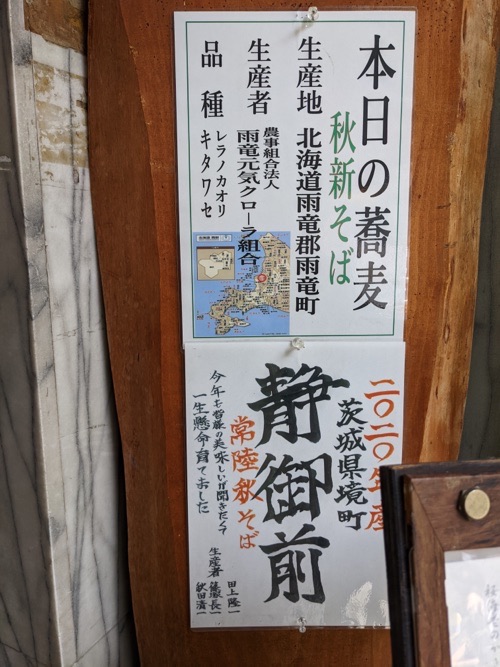 本日の蕎麦
秋新そば
生産地 北海道雨竜郡雨竜町
生産者 農事組合法人
雨竜元気クローラ組合
品種 レラノカオリ
キタワセ
二〇二〇年産
茨城県境町
静御前
常陸秋そば
今年も皆様の美味しいが聞きたくて
一生懸命育てました
生産者 田上隆一
長一
秋田清一